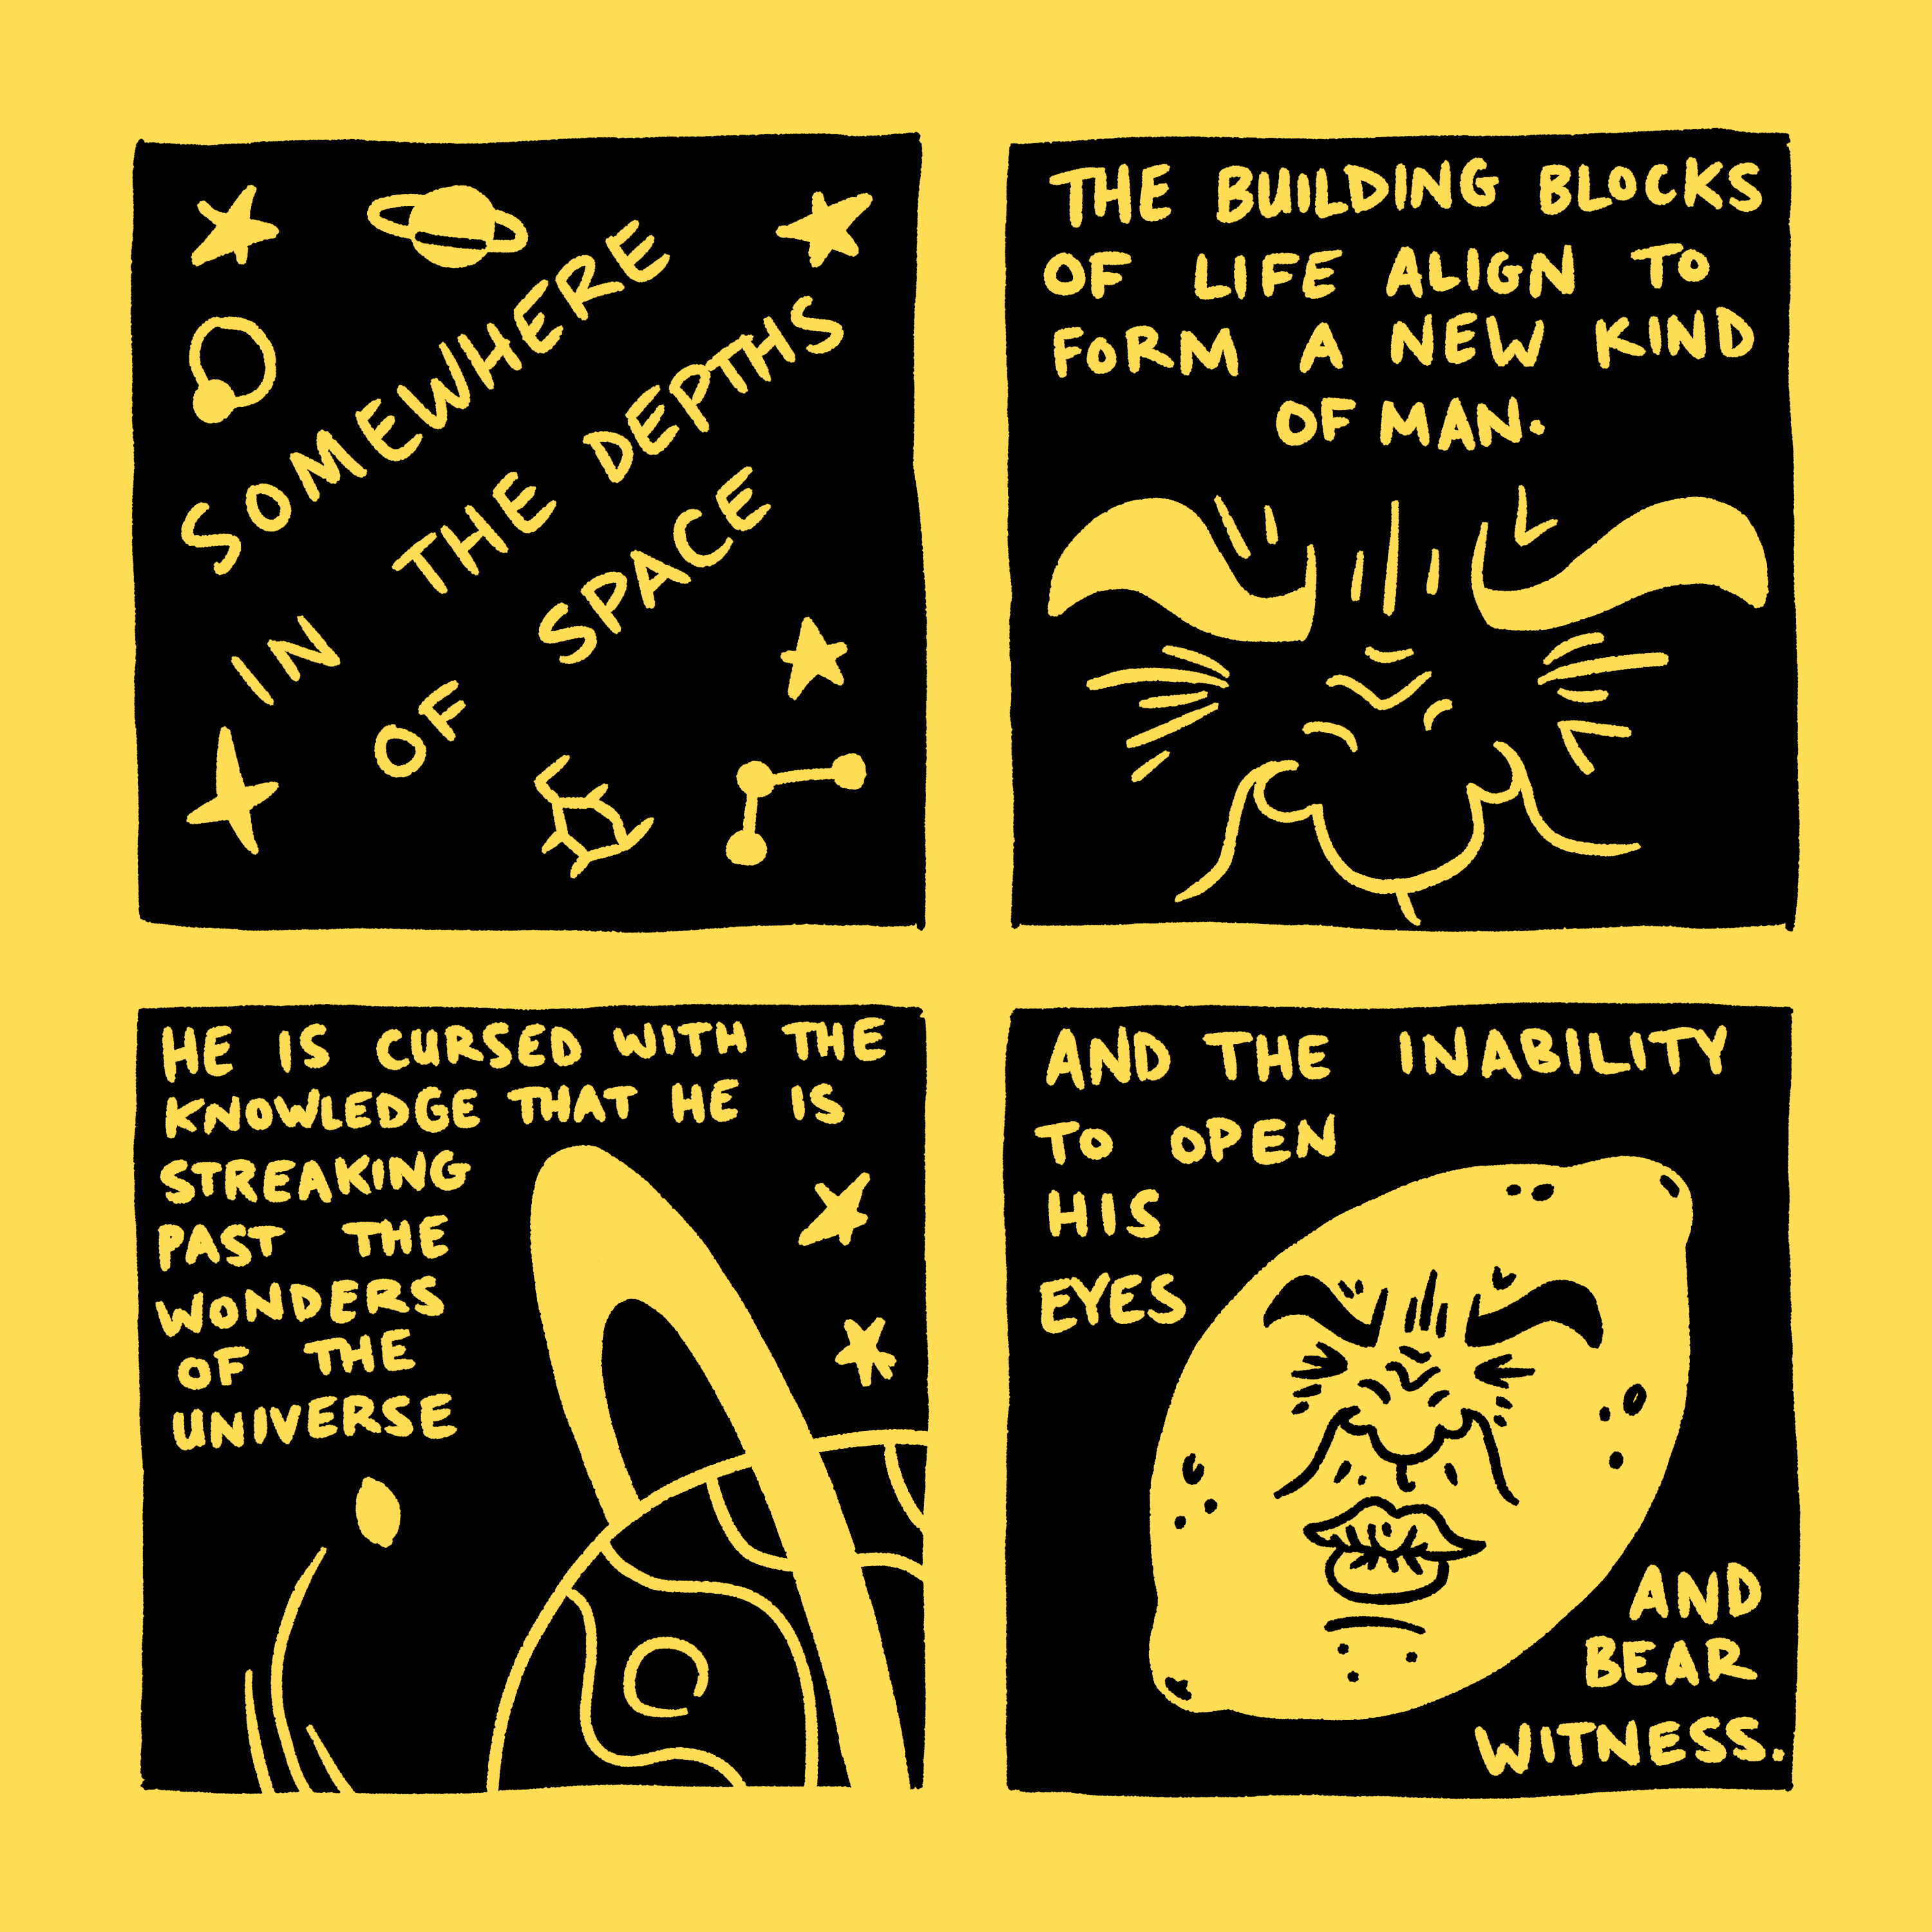 SOMEWHERE
IN THE DEPTHS
OF SPACE
THE BUILDING BLOCKS
OF LIFE ALIGN TO
FORM A NEW KIND
OF MAN.
HE IS CURSED WITH THE
KNOWLEDGE THAT HE IS
STREAKING
PAST THE
WONDERS
OF THE
UNIVERSE
AND THE INABILITY
TO OPEN
HIS
EYES
AND
BEAR
WITNESS.